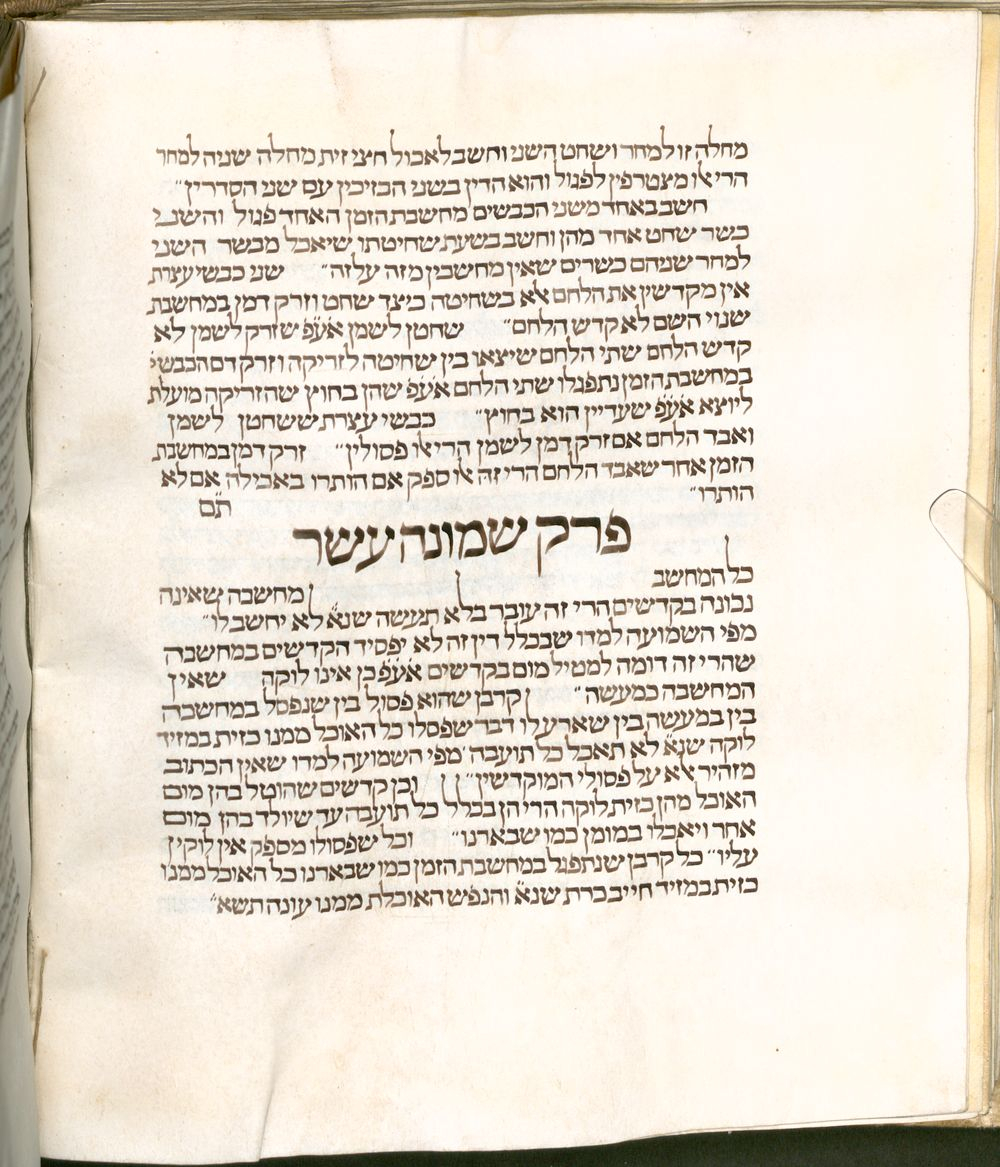 מחלה זו למחר ושחט השני וחשב לאכול חצי זית מחלה שניה למחר
הרי אלו מצטרפין לפגול והוא הדין בשני הבזיכין עם שני הסדרין״
חשב באחד משני הכבשים מחשבת הזמן האחד פגול והשני
כשר שחט אחד מהן וחשב בשעת שחיטתו שיאכל מכשר השני
למחר שניהם כשרים שאין מחשבין מזה על זה״ שני כבשי עצרת
אין מקדשין את הלחם אלא בשחיטה כיצד שחט וזרק דמן במחשבת
שנוי השם לא קדש הלחם״ שחטן לשמן אע״פ שזרק לשמן לא
קדש הלחם שתי הלחם שיצאו בין שחיטה לזריקה וזרק דם הכבשי׳
במחשבת הזמן נתפגלו שתי הלחם אע״פ שהן בחוץ שהזריקה מועלת
ליוצא אע״פ שעדיין הוא בחוץ״ כבשי עצרת ששחטן לשמן
ואבד הלחם אם זרק דמן לשמן הרי אלו פסולין״ זרק דמן במחשבת
הזמן אחר שאבד הלחם הרי זה אלו ספק אם הותרו באכילה אם לא
הותרו״
תם
פרק שמונה עשר
כל המחשב
מחשבה שאינה
נכונה בקדשים הרי זה עובר בלא תעשה שנא׳ לא יחשב לו״
מפי השמועה למדו שבכלל דין זה לא יפסיד הקדשים במחשבה
שהרי זה דומה למטיל מום בקדשים אע״פ כן אינו לוקה שאין
המחשבה כמעשה״ קרבן שהוא פסול בין שנפסל במחשבה
בין במעשה בין שארע לו דבר שפסלו כל האוכל ממנו כזית במזיד
לוקה שנא׳ לא תאכל כל תועבה׳ מפי השמועה למדו שאין הכתוב
מזהיר אלא על פסולי המוקדשין״ וכן קדשים שהוטל בהן מום
האוכל מהן כזית לוקה הרי הן בכלל כל תועבה עד שיולד בהן מום
אחר ויאכלו במומן כמו שבארנו״ וכל שפסולו מספק אין לוקין
עליו״ כל קרבן שנתפגל במחשבת הזמן כמו שבארנו כל האוכל ממנו
כזית במזיד חייב כרת שנא׳ והנפש האוכלת ממנו עונה תשא״